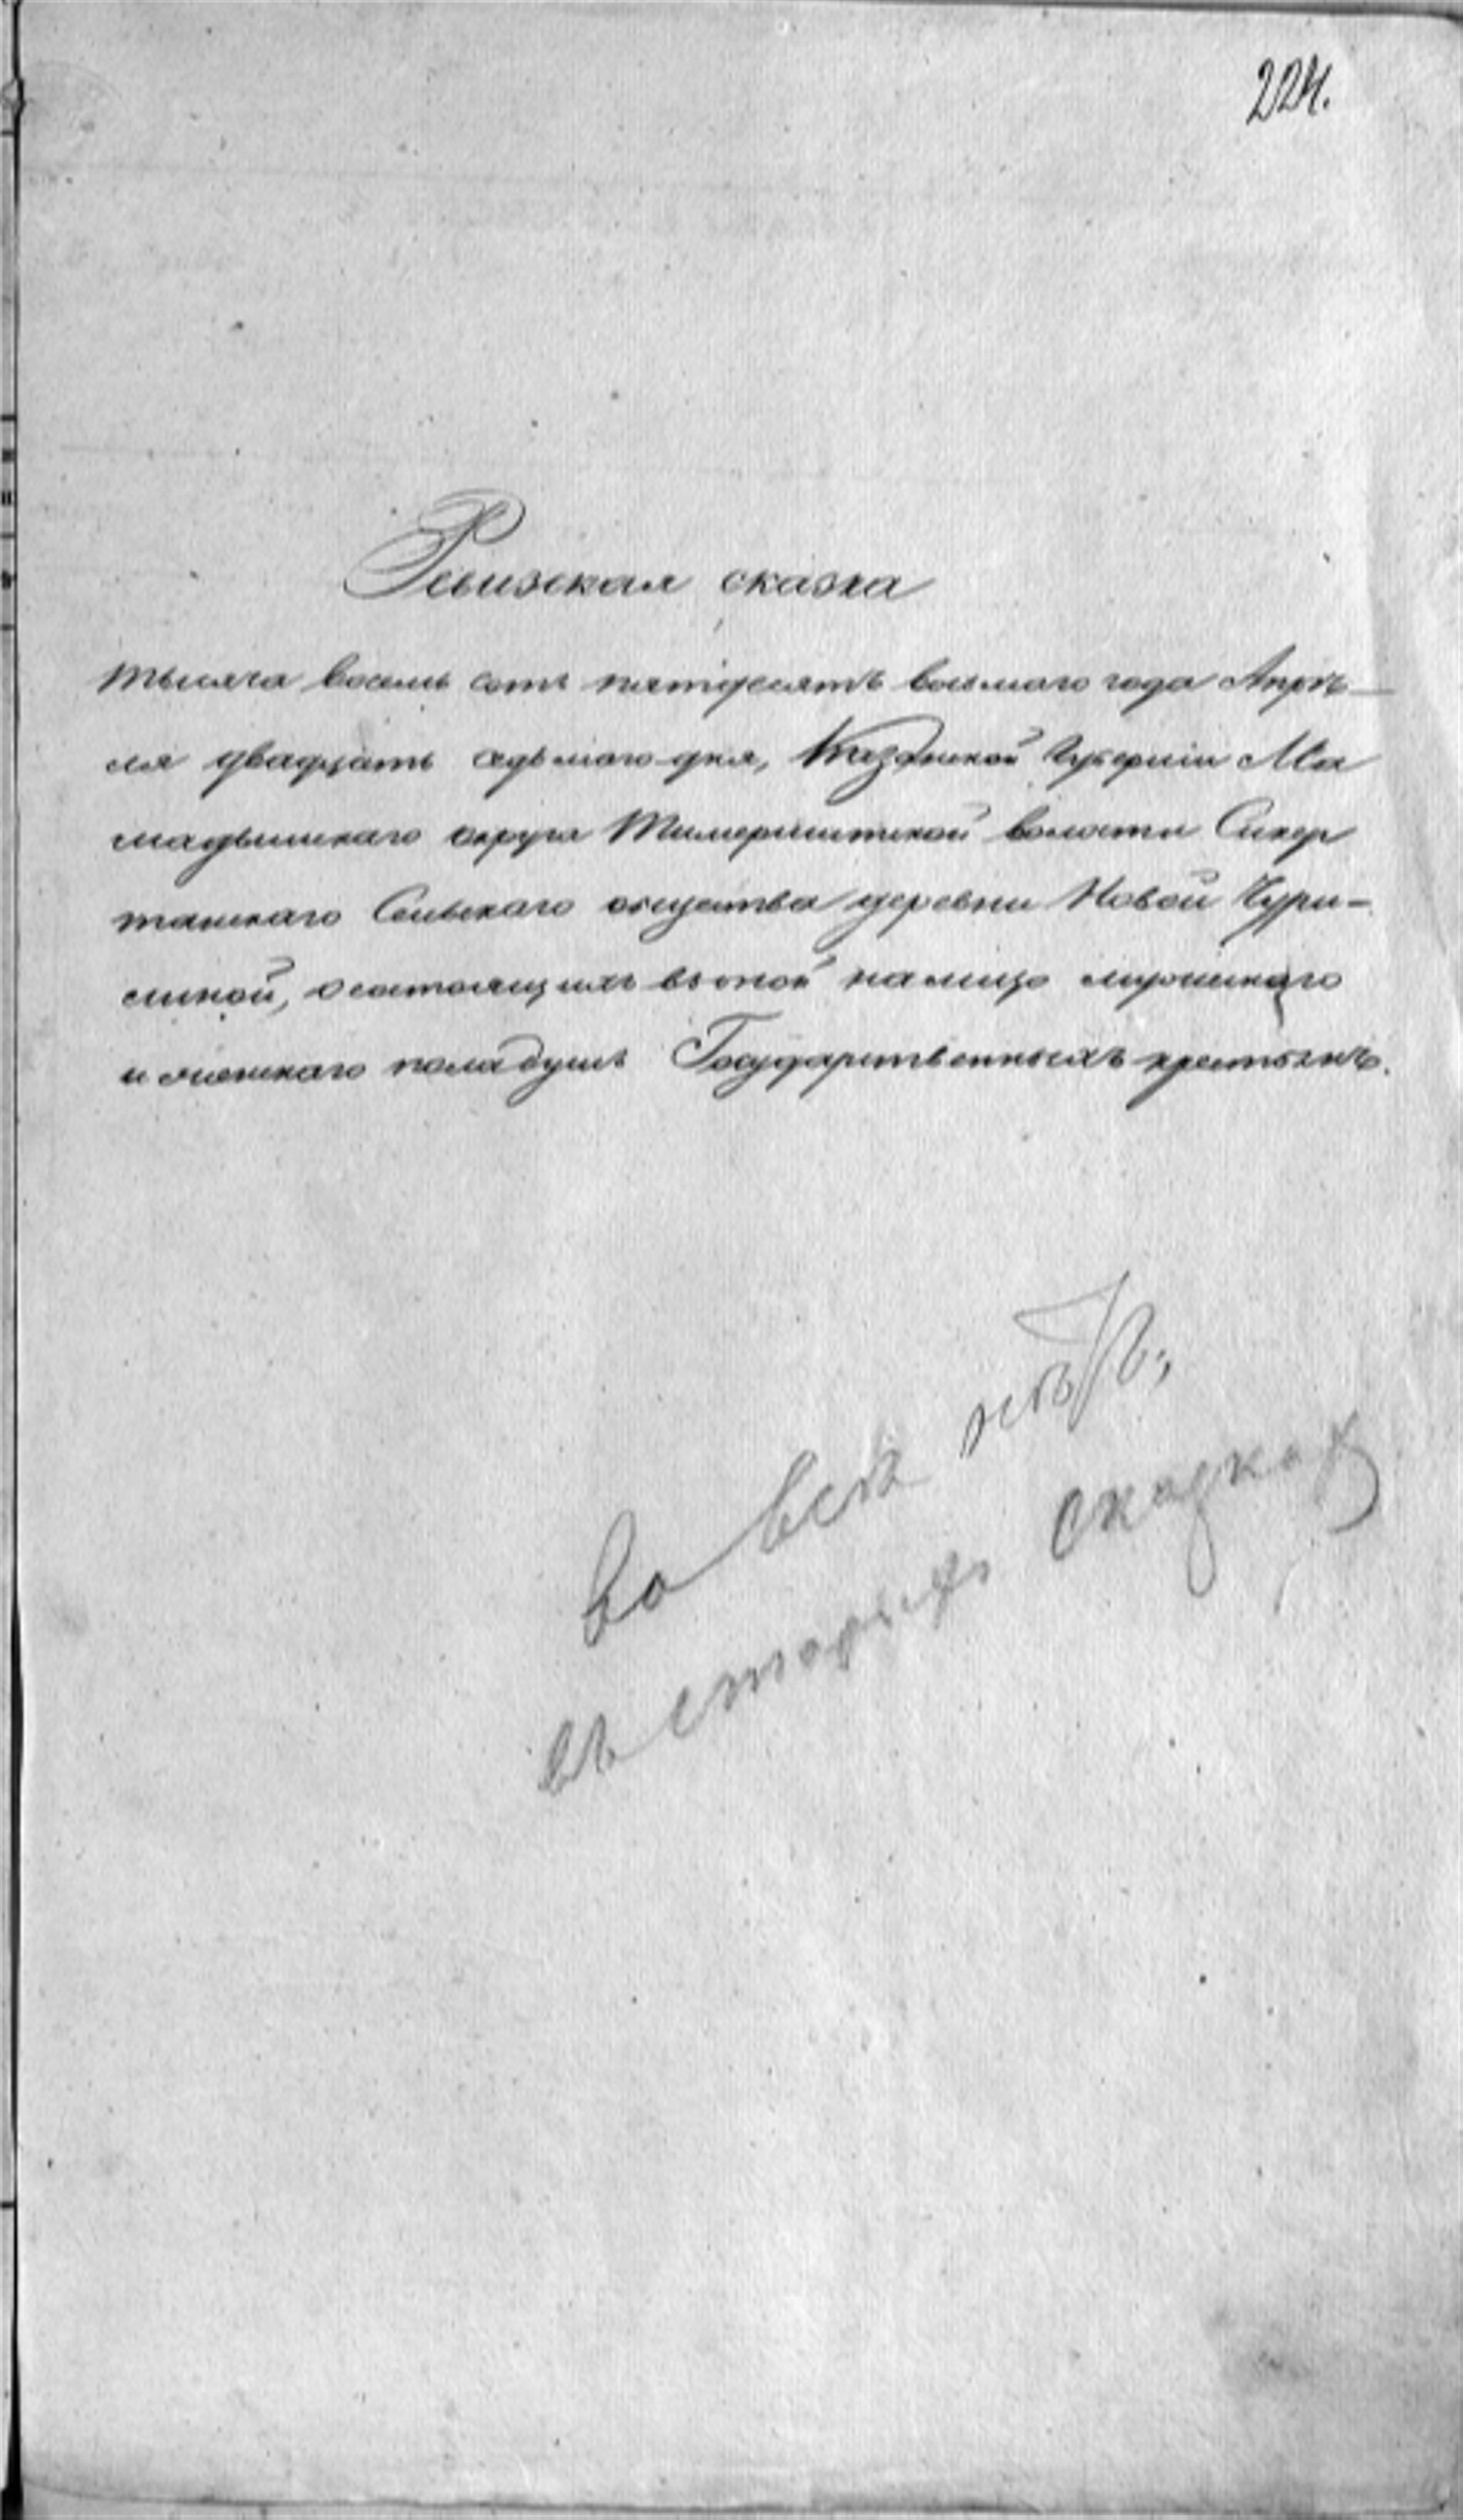 224.
Ревизская сказка
тысяча восемь сотъ пятидесятъ восьмого года Апрѣ-
ля двадцать седьмого дня, Казанской Губерніи Ма
мадышскаго округа Тимершитской волости Сикер
танскаго Сельскаго общества деревни Новой Чури-
линой, о состоящихъ въ оной на лицо мужескаго
и женскаго пола душъ Государственныхъ крестьянъ.
въ старыхъ сказкахъ